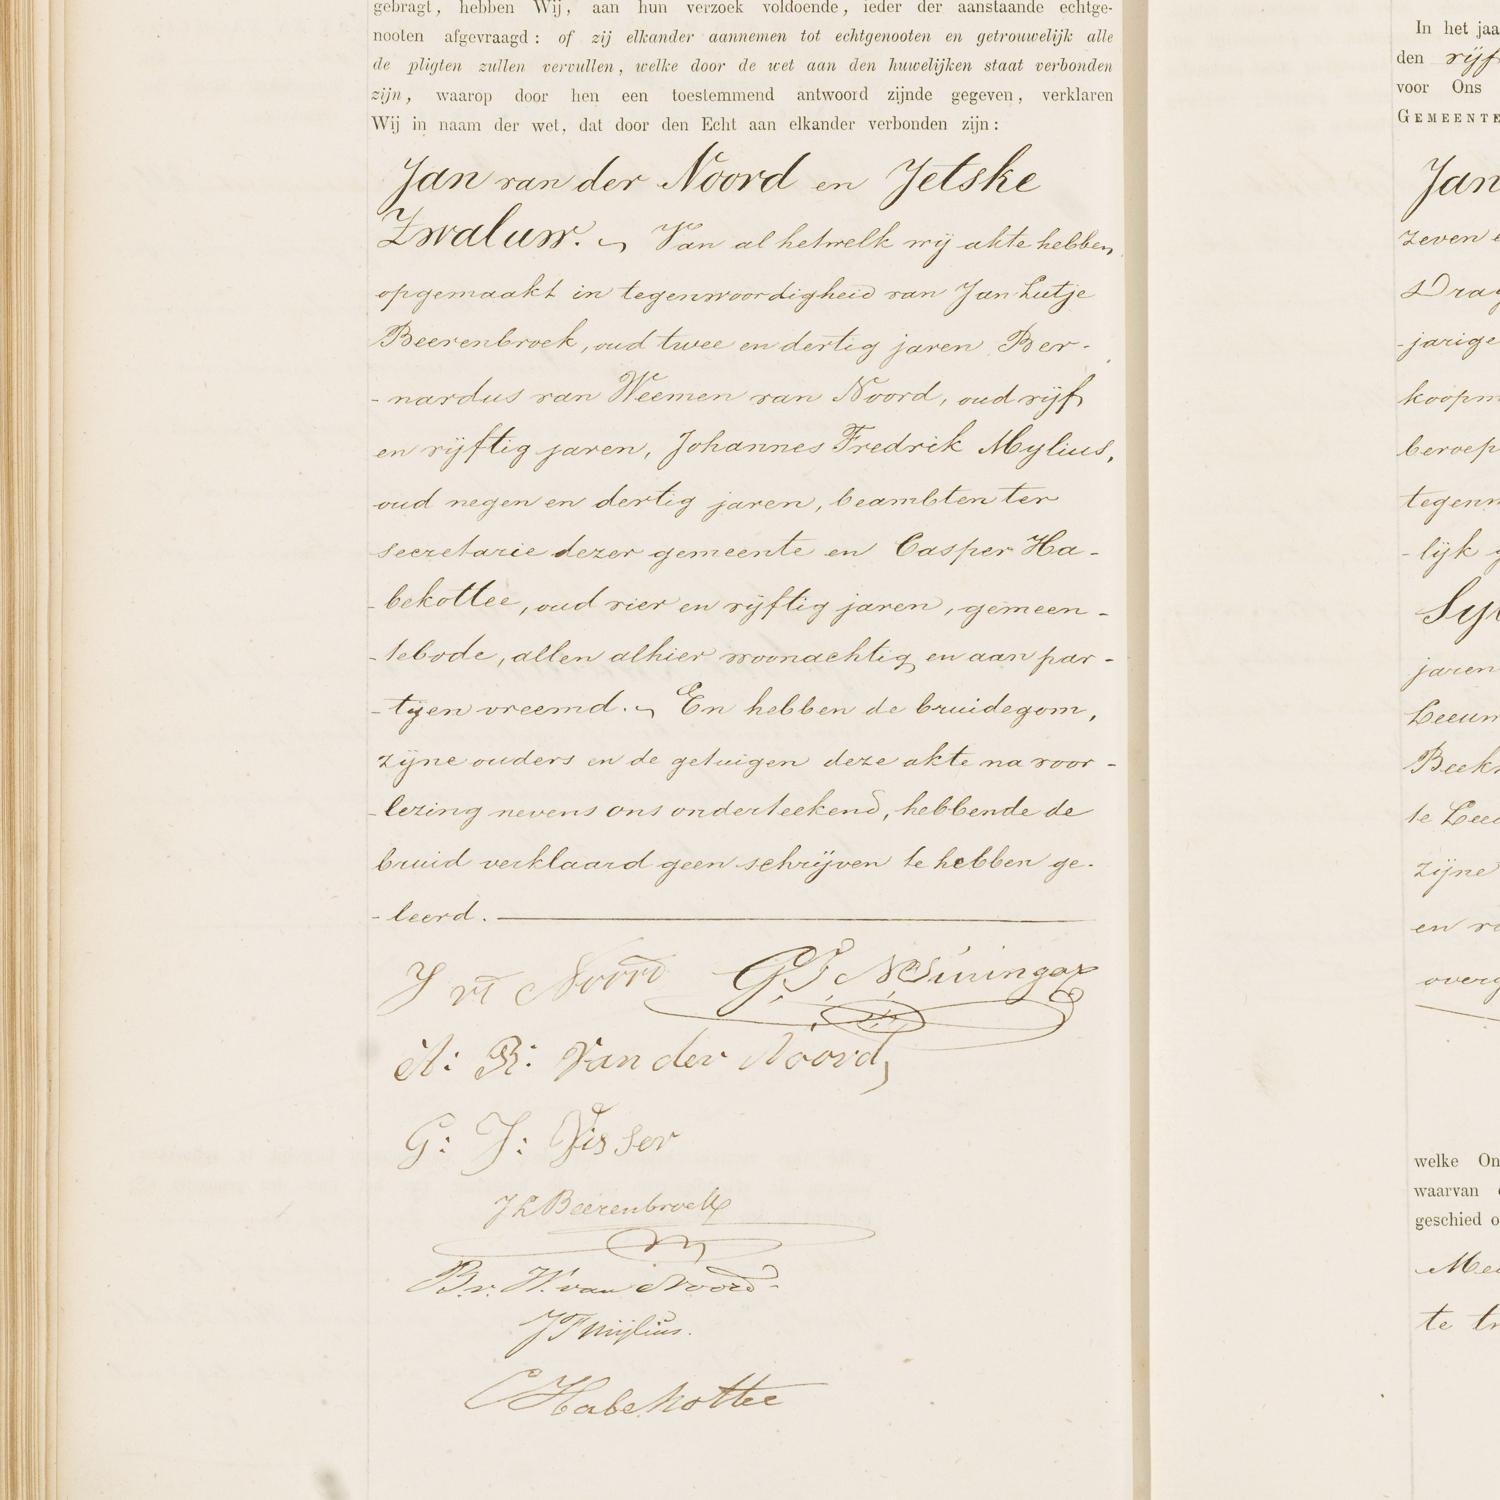 gebragt, hebben Wij, aan hun verzoek voldoende, ieder der aanstaande echtge-
nooten afgevraagd: of zij elkander aannemen tot echtgenooten en getrouwelijk alle
de pligten zullen vervullen, welke door de wet aan den huwelijken staat verbonden
zijn, waarop door hen een toestemmend antwoord zijnde gegeven, verklaren
Wij in naam der wet, dat door den Echt aan elkander verbonden zijn:
Jan van der Noord en Jetske
Zwaluw. Van al hetwelk wij akte hebben
opgemaakt in tegenwoordigheid van Jan Lutje
Beerenbroek, oud twee en dertig jaren Ber-
-nardus van Weemen van Noord, oud vijf
en vijftig jaren, Johannes Fredrik Mylius,
oud negen en dertig jaren, beambten ter
secretarie dezer gemeente en Casper Ha-
-bekottee, oud vier en vijftig jaren, gemeen-
-tebode, allen alhier woonachtig en aan par-
-tyen vreemd. En hebben de bruidegom,
zijne ouders en de getuigen deze akte na voor-
-lezing nevens ons onderteekend, hebbende de
bruid verklaard geen schrijven te hebben ge-
-leerd.
J vd Noord
A: R: Van der Noord,
G: J: Visser
JLBeerenbroek
Br. W. van Noord
JFMijlius.
CHabekottee
In het jaa
den vijf
voor Ons
GEMEENTE
Jan
zeven e
Drag
-jarige
koopm
beroep
tegenw
-lijk g
Sy
jaren
Leeuw
Beek
te Lee
zijne
en vo
overg
welke On
waarvan
geschied o
Me
te tr